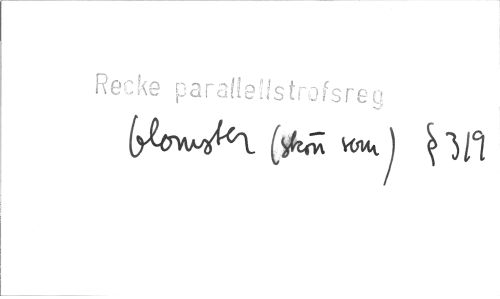 Recke parallellstrofsreg
blomster (skön som) § 319